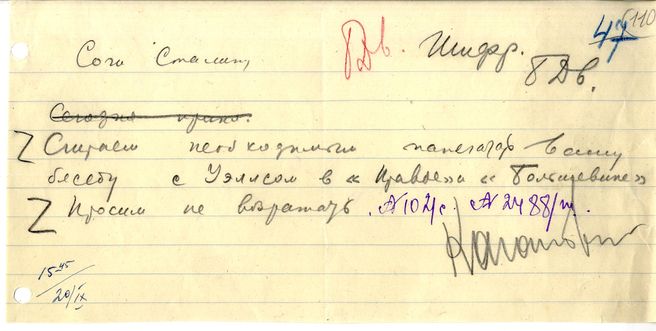 110
47
Сочи Сталину
БДв. Шифр.
БДв.
Сегодня
Считаем необходимым напечатать Вашу
беседу с Уэллсом в «Правде» и «Большевике»
Просим не возражать. №102/с №2488/ш.
Каганович
15-45
20/IX